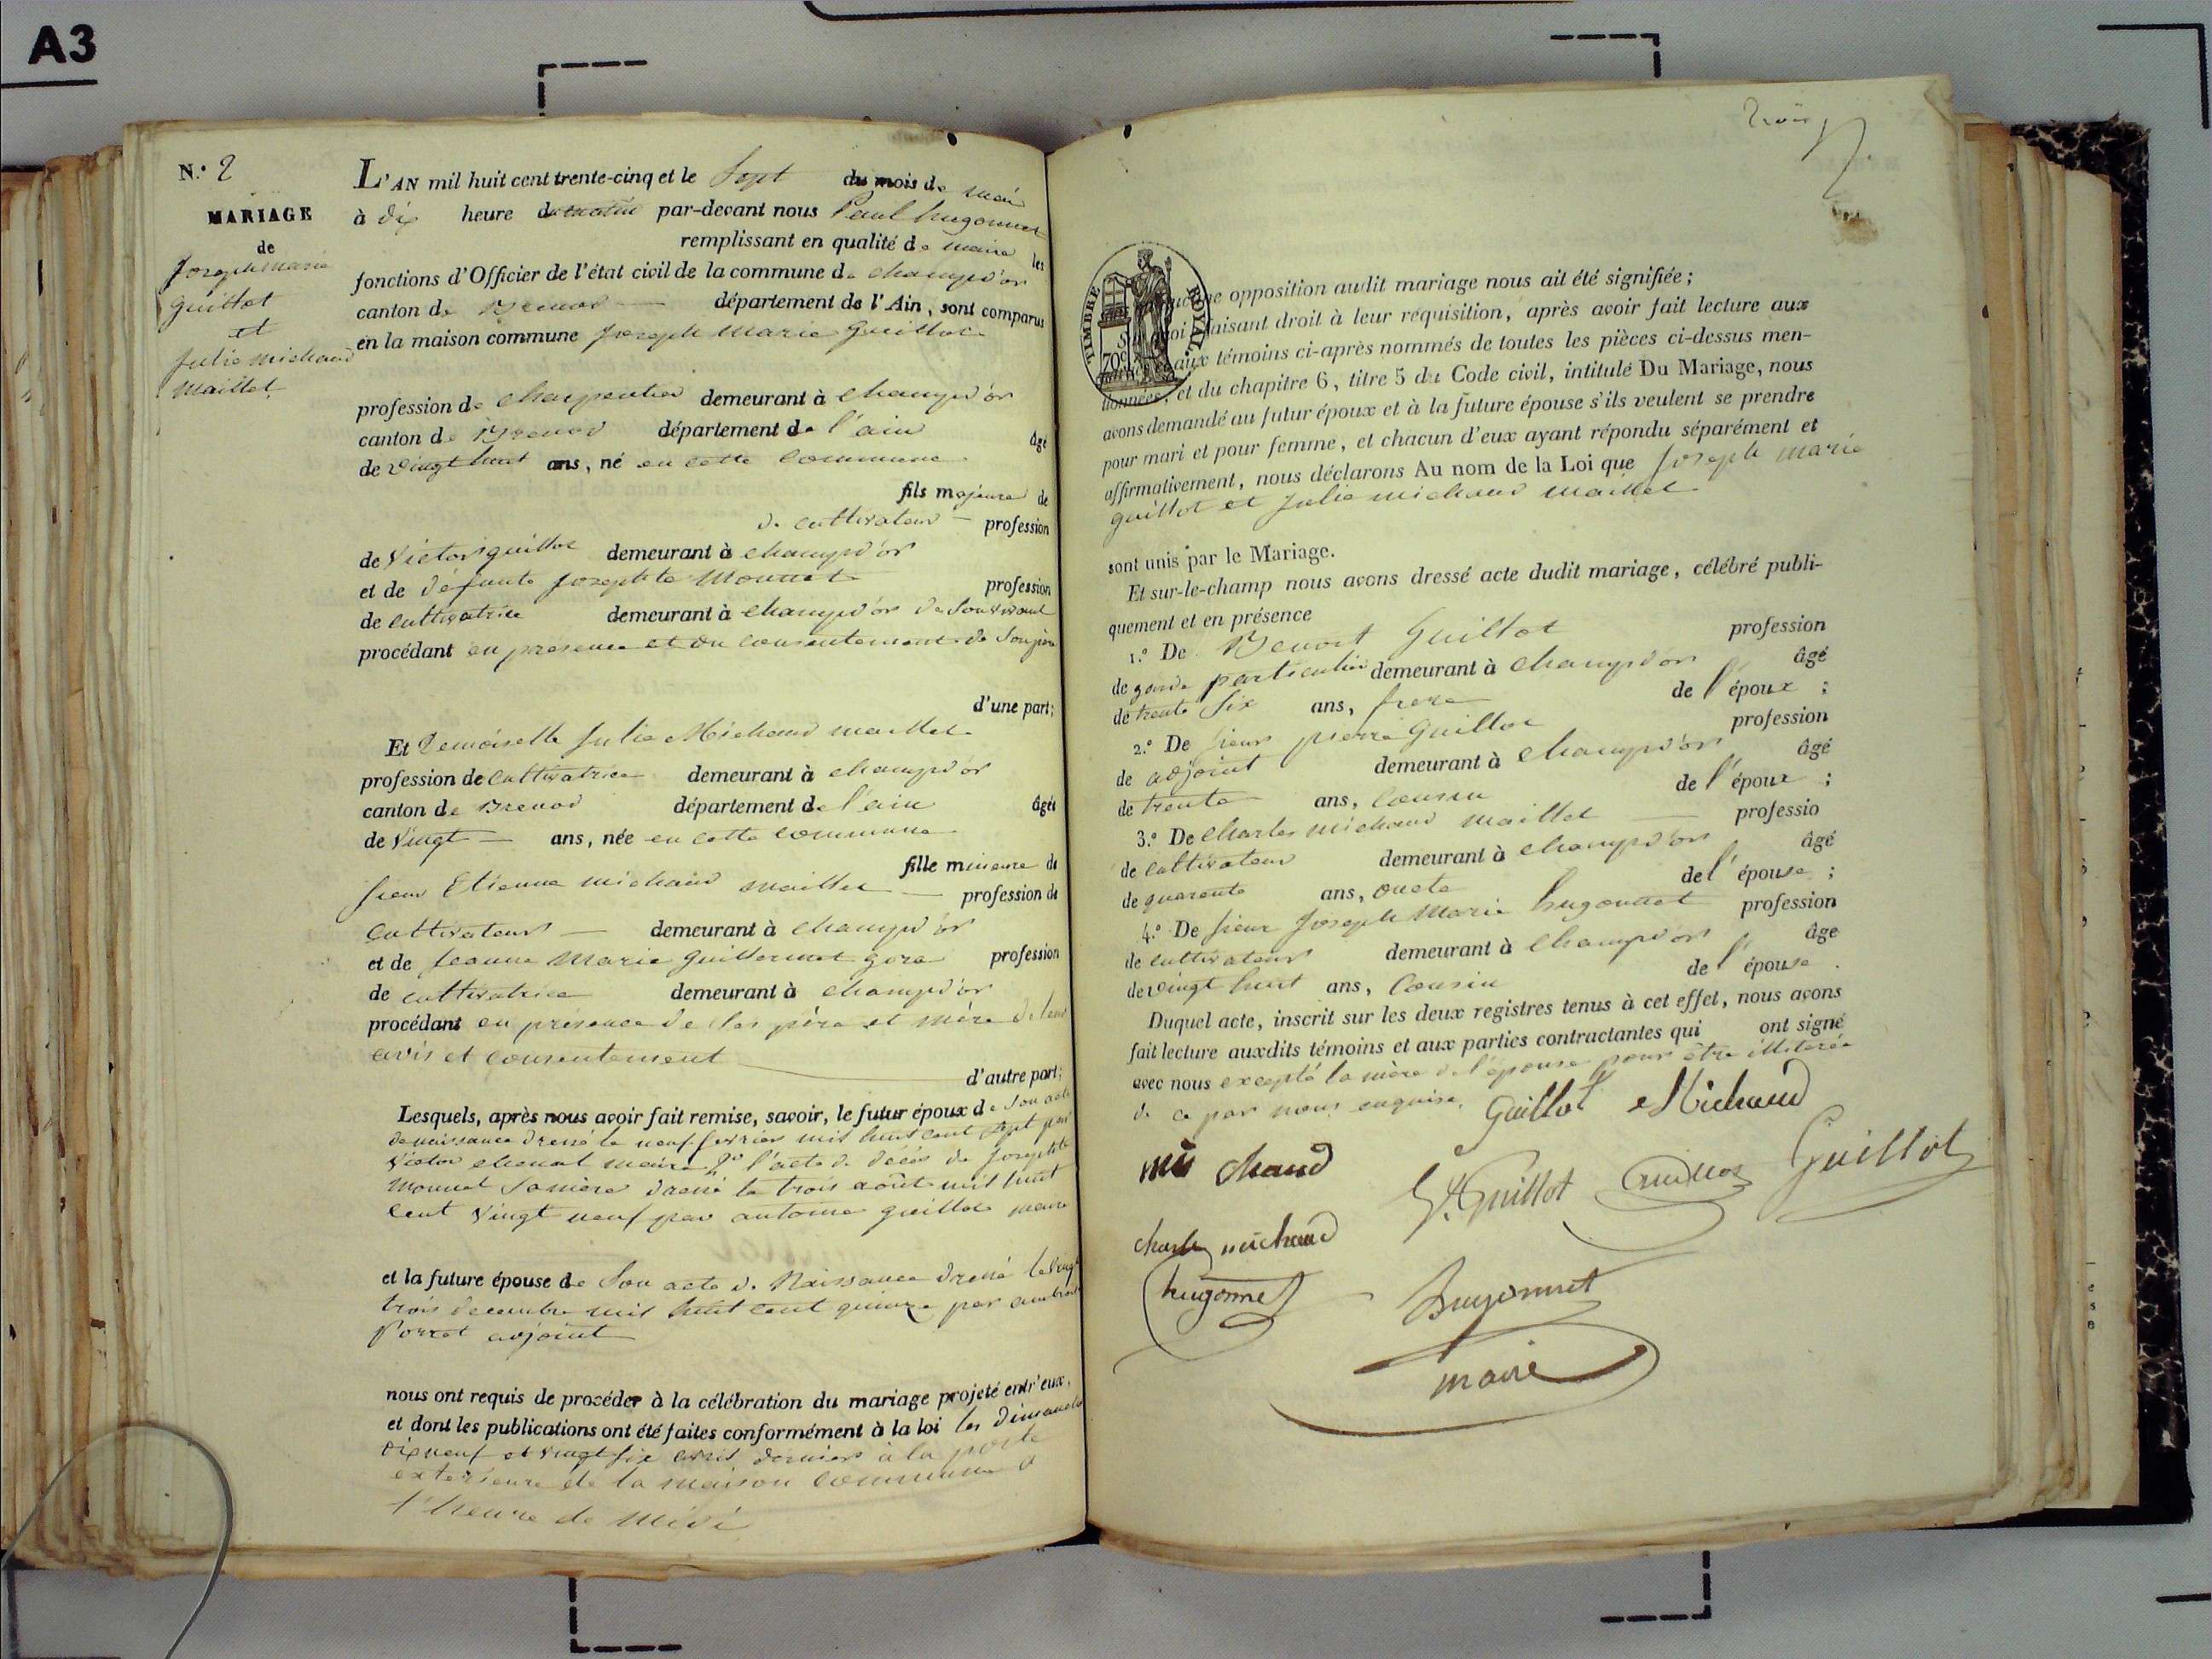 A3
N.° 2
MARIAGE
de
Joseph marie
guillot
et
Julie michaud
maillet
L'AN mil huit cent trente-cinq et le Sept du mois de mai
à dix heure du matin par-devant nous Paul hugonnet
remplissant en qualité de maire les
fonctions d'Officier de l'état civil de la commune de champd'or
canton de Brenod département de l'Ain, sont comparus
en la maison commune Joseph Marie Guillot
profession de charpentier demeurant à champd'or
canton de Brenod département de l'ain âgé
de vingt huit ans, né en cette commune
fils majeur de
de cultivateur profession
de Victor guillot demeurant à champd'or
et de défunte Josephte Monnet profession
de cultivatrice demeurant à champd'or de Son vivant
procédant en présence et du consentement de Son père
d'une part;
Et Demoiselle Julie Michaud maillet
profession de cultivatrice demeurant à champd'or
canton de Brenod département de l'ain âgée
de vingt ans, née en cette commune
fille mineure de
Sieur Etienne michaud maillet profession de
cultivateur demeurant à champd'or
et de Jeanne Marie Guillermet gora profession
de cultivatrice demeurant à champd'or
procédant en présence de Ses père et mère de leur
avis et consentement
d'autre part;
Lesquels, après nous avoir fait remise, savoir, le futur époux de Son acte
de naissance dressé le neuf fevrier mil huit cent Sept par
Victor chenal maire 2° l'acte de décès de Josephte
Monnet Sa mère dressé le trois août mil huit
cent vingt neuf par antoine guillot maire
et la future épouse de Son acte de Naissance dressé le vingt
trois decembre mil huit cent quinze par
Porret adjoint
nous ont requis de procéder à la célébration du mariage projeté entr'eux,
et dont les publications ont été faites conformément à la loi les dimanches
dix neuf et vingt six avril derniers à la porte
exterieure de la maison commune à
l'heure de Midi
trois
TIMBRE ROYAL
70c
opposition audit mariage nous ait été signifiée;
faisant droit à leur réquisition, après avoir fait lecture aux
aux témoins ci-après nommés de toutes les pièces ci-dessus men-
tionnées, et du chapitre 6, titre 5 du Code civil, intitulé Du Mariage, nous
avons demandé au futur époux et à la future épouse s'ils veulent se prendre
pour mari et pour femme, et chacun d'eux ayant répondu séparément et
affirmativement, nous déclarons Au nom de la Loi que Joseph marie
guillot et Julie michaud maillet
sont unis par le Mariage.
Et sur-le-champ nous avons dressé acte dudit mariage, célébré publi-
quement et en présence
1.° De Benoit Guillot profession
de garde particulier demeurant à champd'or âgé
de trente Six ans, frere de l'époux;
2.° De Sieur pierre Guillot profession
de adjoint demeurant à champd'or âgé
de trente ans, cousin de l'époux;
3.° De Charles michaud maillet professio
de cultivateur demeurant à champd'or âgé
de quarante ans, oncle de l'épouse;
4.° De Sieur Joseph Marie hugonnet profession
de cultivateur demeurant à champd'or âge
de vingt huit ans, Cousin de l'épouse.
Duquel acte, inscrit sur les deux registres tenus à cet effet, nous avons
fait lecture auxdits témoins et aux parties contractantes qui ont signé
avec nous excepté la mère de l'épouse pour être illiterée
de ce par nous enquise.
Guillot Michaud
mis chaud
Guillot Guillot Guillot
charle michaud
hugonnet
hugonnet
maire